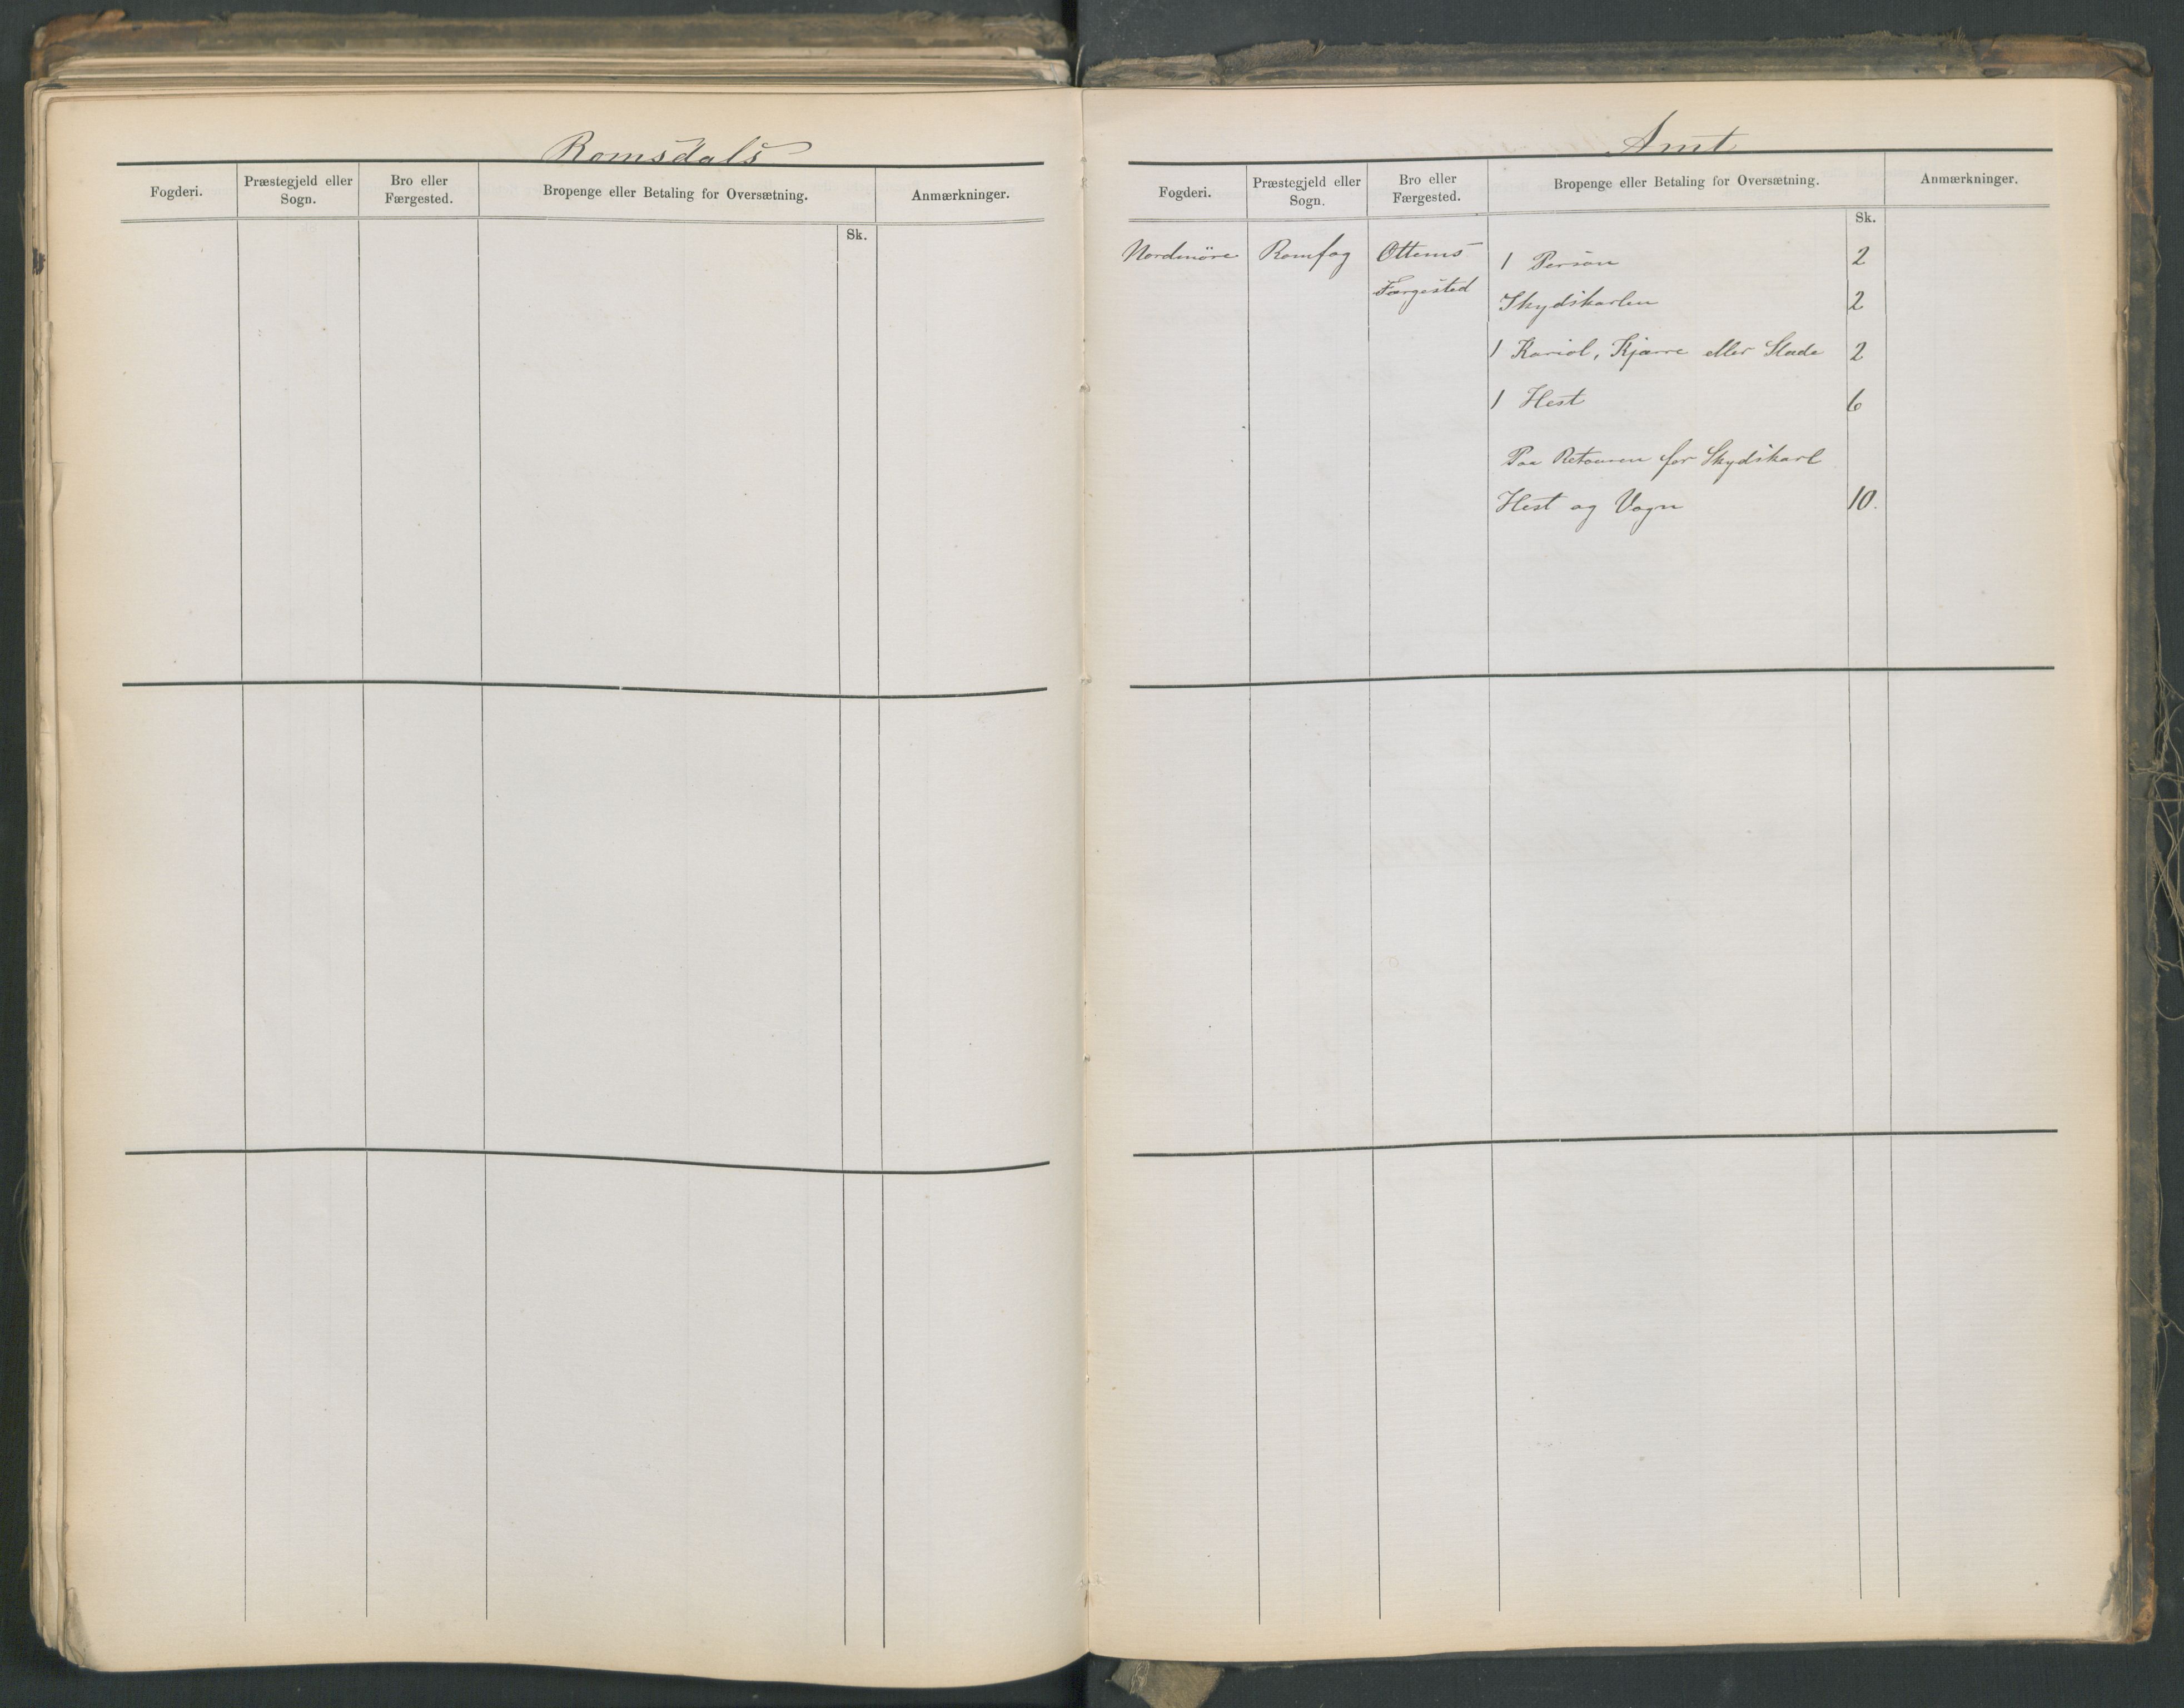 Romsdals
Fogderi.
Præstegjeld eller
Sogn.
Bro eller
Færgested.
Bropenge eller Betaling for Oversætning.
Anmærkninger.
Sk.
Amt
Fogderi.
Præstegjeld eller
Sogn.
Bro eller
Færgested.
Bropenge eller Betaling for Oversætning.
Anmærkninger.
Sk.
Nordmöre Romfog Ottems 1 Person 2
Færgested
Skydskarlen 2
1 Kariol, Kjærre eller Slæde 2
1 Hest 6
Paa Retouren for Skydskarl
Hest og Vogn 10.